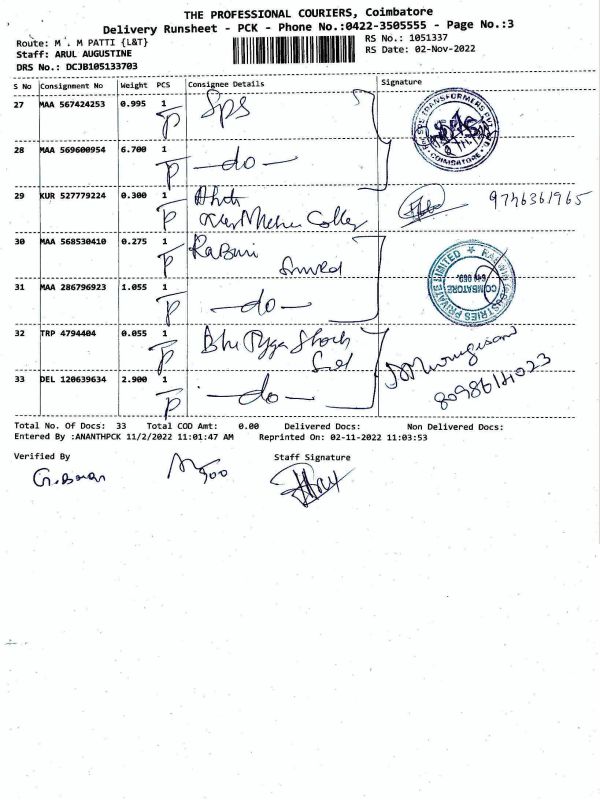 THE PROFESSIONAL COURIERS, Coimbatore
Delivery Runsheet - PCK - Phone No.:0422-3505555 - Page No.:3
Route: M . M PATTI {L&T}
RS No.: 1051337
Staff: ARUL AUGUSTINE
RS Date: 02-Nov-2022
DRS No.: DCJB105133703
S No Consignment No Weight PCS Consignee Details Signature
27 MAA 567424253 0.995 1 Sps
P
SPS TRANSFORMERS PVT
COIMBATORE
28 MAA 569600954 6.700 1 -do-
P
29 KUR 527779224 0.300 1
P
9746361965
30 MAA 568530410 0.275 1
P
INDUSTRIES PRIVATE LIMITED
COIMBATORE
31 MAA 286796923 1.055 1 -do-
P
32 TRP 4794404 0.055 1
P
33 DEL 120639634 2.900 1 -do-
P
Total No. Of Docs: 33 Total COD Amt: 0.00 Delivered Docs: Non Delivered Docs:
Entered By :ANANTHPCK 11/2/2022 11:01:47 AM Reprinted On: 02-11-2022 11:03:53
Verified By Staff Signature